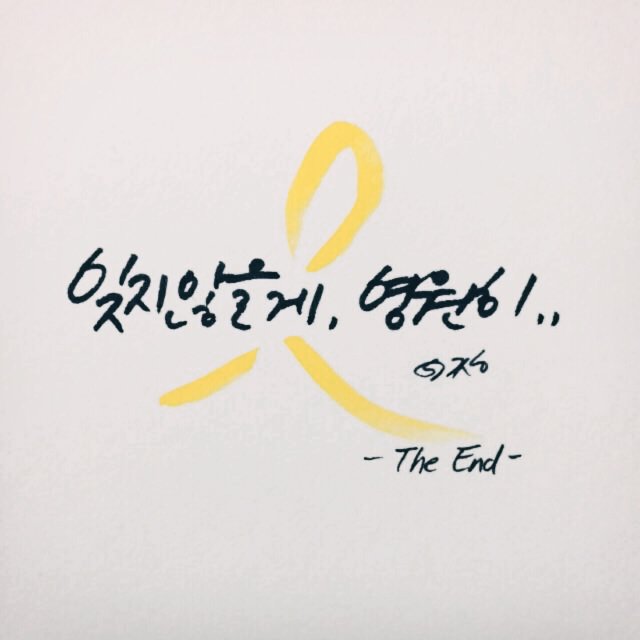 잊지않을게, 영원히..
- The End -